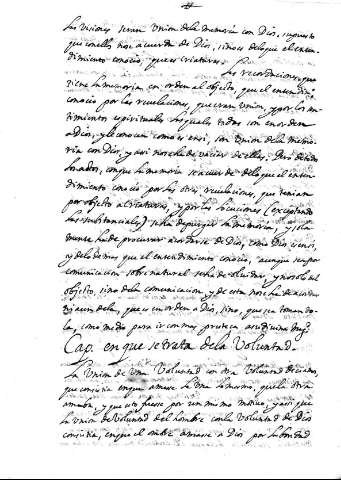 las visiones seran Union dela memoria con Dios, supuesto
que conellas no se acuerda de Dios, sino es delo que el enten-
dimiento conocio, que es criatura.
Las recordaciones, que
tiene la memoria en orden al objecto, que el entendim.
conocio por las revelaciones, que eran union, y por los sen-
timientos espirituales los quales todos son en orden
a Dios, y le conocen como es en si, son Union dela memo-
ria con Dios, y assi no se ha de vaciar de ellas. Pero
los actos, con que la memoria se acuerda delo que el enten-
dimiento conocio por las otras revelaciones, que tenian
por objeto a criaturas, y por las locuciones (exceptando
las substanciales) se ha de purgar la memoria, y sola-
mente ha de procurar acordarse de Dios, como Dios es en si,
y delo demas que el entendimiento conocio, aunque sea por
comunicacion sobrenatural se ha de olvidar, y no solo del
objecto, sino dela comunicacion, y de esta no se ha de acordar
en orden a Dios, sino, que sea toman do-
la, como medio para ir con mas a su divina Mag.
Cap. en que se trata dela Voluntad.
La Union de una Voluntad con otra Voluntad decimos,
que consistia en que amase la una lo mismo, que la otra
amaba, y que esto fuesse por un mismo motivo, y assi que
la union de Voluntad del hombre con la Voluntad de Dios
consistia, en que el ombre amasse a Dios por la bondad